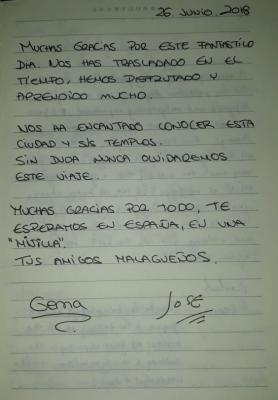 26 JUNIO 2018
MUCHAS GRACIAS POR ESTE FANTASTICO
DIA. NOS HAS TRASLADADO EN EL
TIEMPO, HEMOS DISFRUTADO Y
APRENDIDO MUCHO.
NOS HA ENCANTADO CONOCER ESTA
CIUDAD Y SUS TEMPLOS.
SIN DUDA NUNCA OLVIDAREMOS
ESTE VIAJE.
MUCHAS GRACIAS POR TODO, TE
ESPERAMOS EN ESPAÑA, EN UNA
"MISILLA".
TUS AMIGOS MALAGUEÑOS.
Gema JOSE